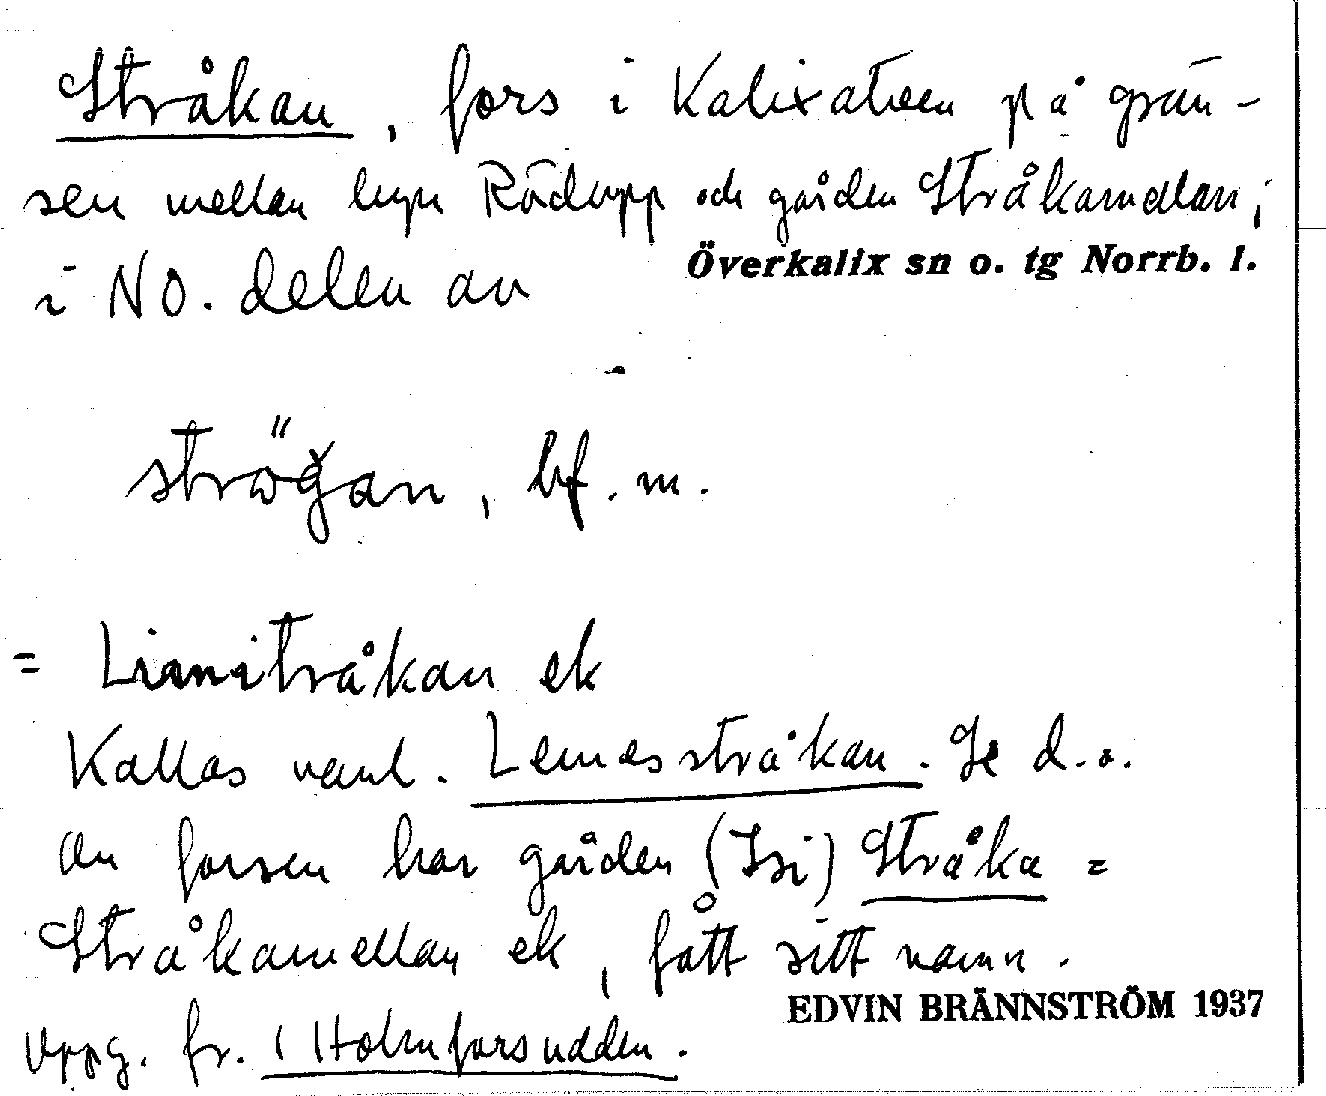 Stråkan, fors i Kalixälven på grän-
sen mellan byn Rödupp och gården Stråkamellan;
Överkalix sn o. tg Norrb. l.
i NO. delen av
bf. m.
= Linnströkan ek
Kallas vanl. Lennesstråkan. Se d.o.
Av forsen har gården (Isi) Stråka =
Stråkamellan ek, fått sitt namn.
EDVIN BRÄNNSTRÖM 1937
Uppg. fr. i Holmforsudden.